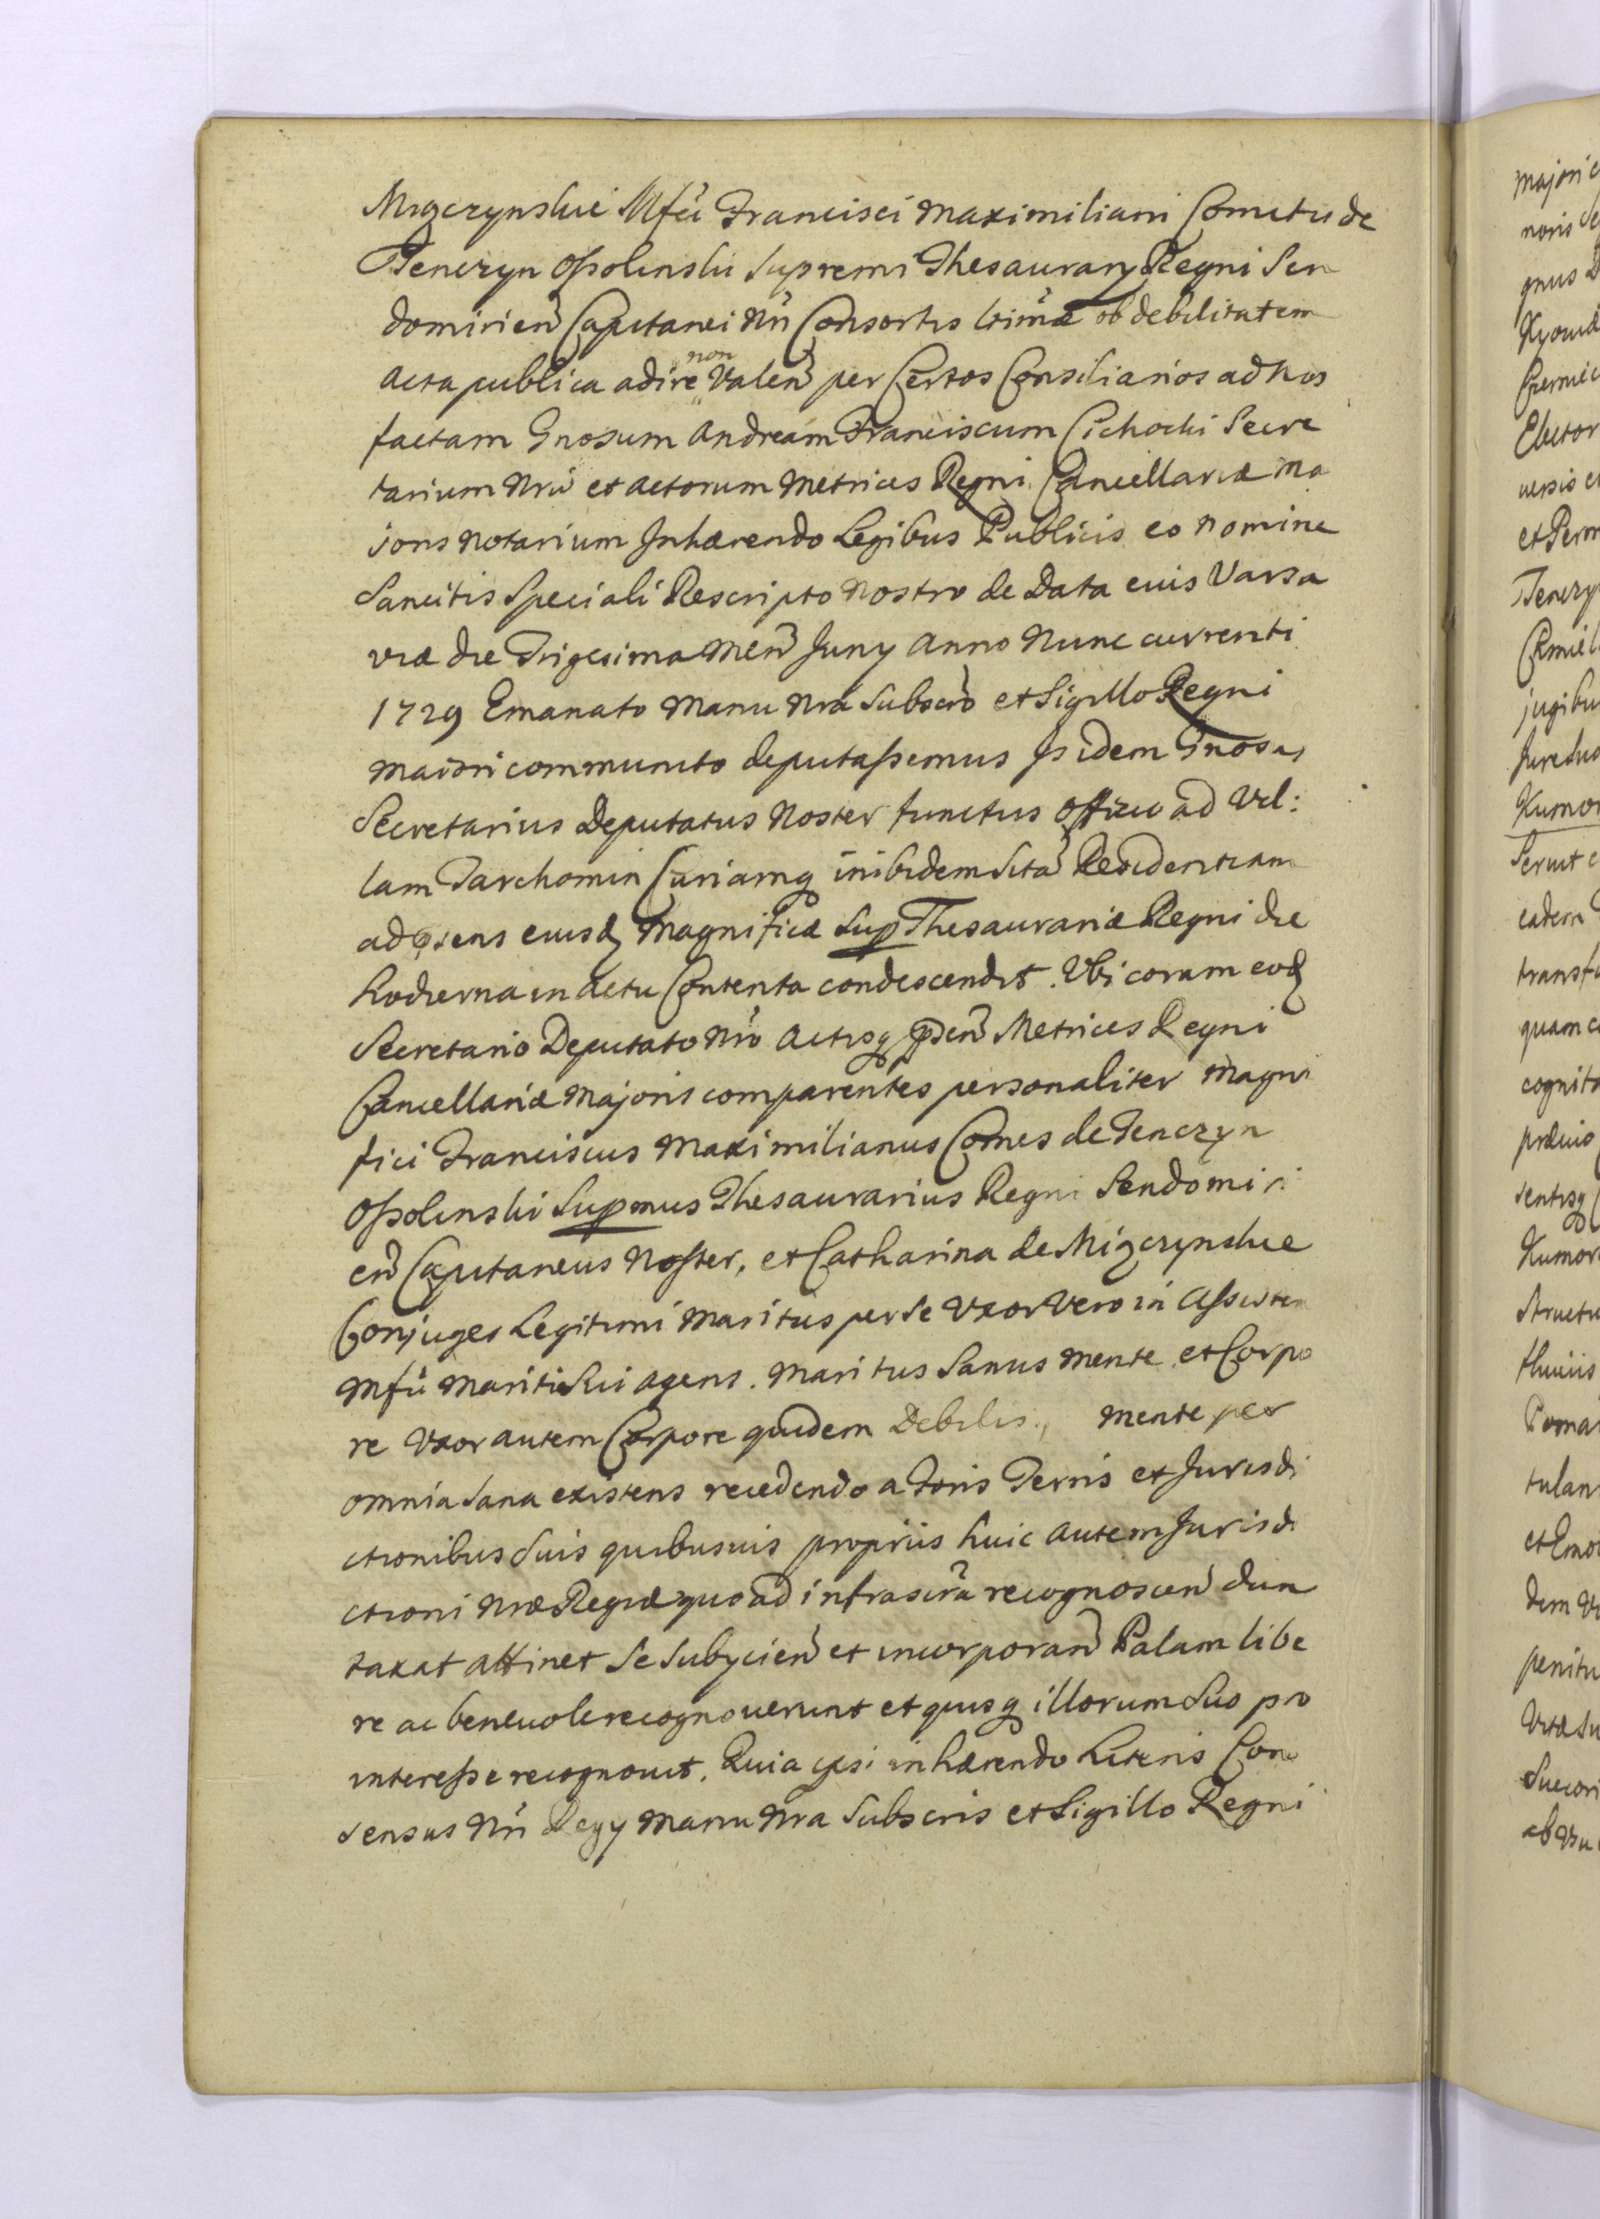 Mączynskie Mfci Francisci Maximiliani Comitis de
Tenczyn Ossolinski Supremi Thesaurary Regni Sen
domirien Capitanei Nri Consortis ltimæ ob debilitatem
Acta publica adire non Valen per Certos Consiliarios ad nos
factam Gnosum Andream Franciscum Cichocki Secre
tarium Nrū et Actorum Metrices Regni Cancellariæ Ma
ioris Notarium Inhærendo Legibus Publicis eo nomine
Sancitis Speciali Rescripto Nostro de Data eius Varsa
viæ die Trigesima Men Juny Anno Nunc currenti
1729 Emanato Manu Nra Subscro et Sigillo Regni
maiori communito deputassemus Isidem Gnosus
Secretarius Deputatus Noster functus Officio ad Vil:
lam Tarchomin Curiamq inibidem Sitā Residentiam
ad psens eiusd Magnificæ Sup Thesaurariæ Regni die
hodierna in Actu Contenta condescendit. Ubi coram eod
Secretario Deputato Nro Actisq psen Metrices Regni
Cancellariæ Majoris comparentes personaliter Magni
fici Franciscus Maximilianus Comes de Tenczyn
Ossolinski Supmus Thesaurarius Regni Sendomiri
en Capitaneus Noster, et Catharina de Miączynskie
Conjuges Legitimi Maritus per se Uxor Vero in Assisten
Mfci Mariti Sui agens. Maritus Sanus Mente et Corpo
re Uxor autem Corpore quidem Debilis, mente per
omnia Sana existens recedendo a Foris Terris et Jurisdi
ctionibus Suis quibusvis propriis huic autem Jurisdi
ctioni Nræ Regiæ quo ad infrascra recognoscen dun
taxat attinet Se Subycien et incorporan Palam libe
re ac benevole recognoverunt et quisq illorum Suo pro
interesse recognovit. Quia ipsi inhærendo Literis Con
sensus Nri Regy Manu Nra Subscris et Sigillo Regni